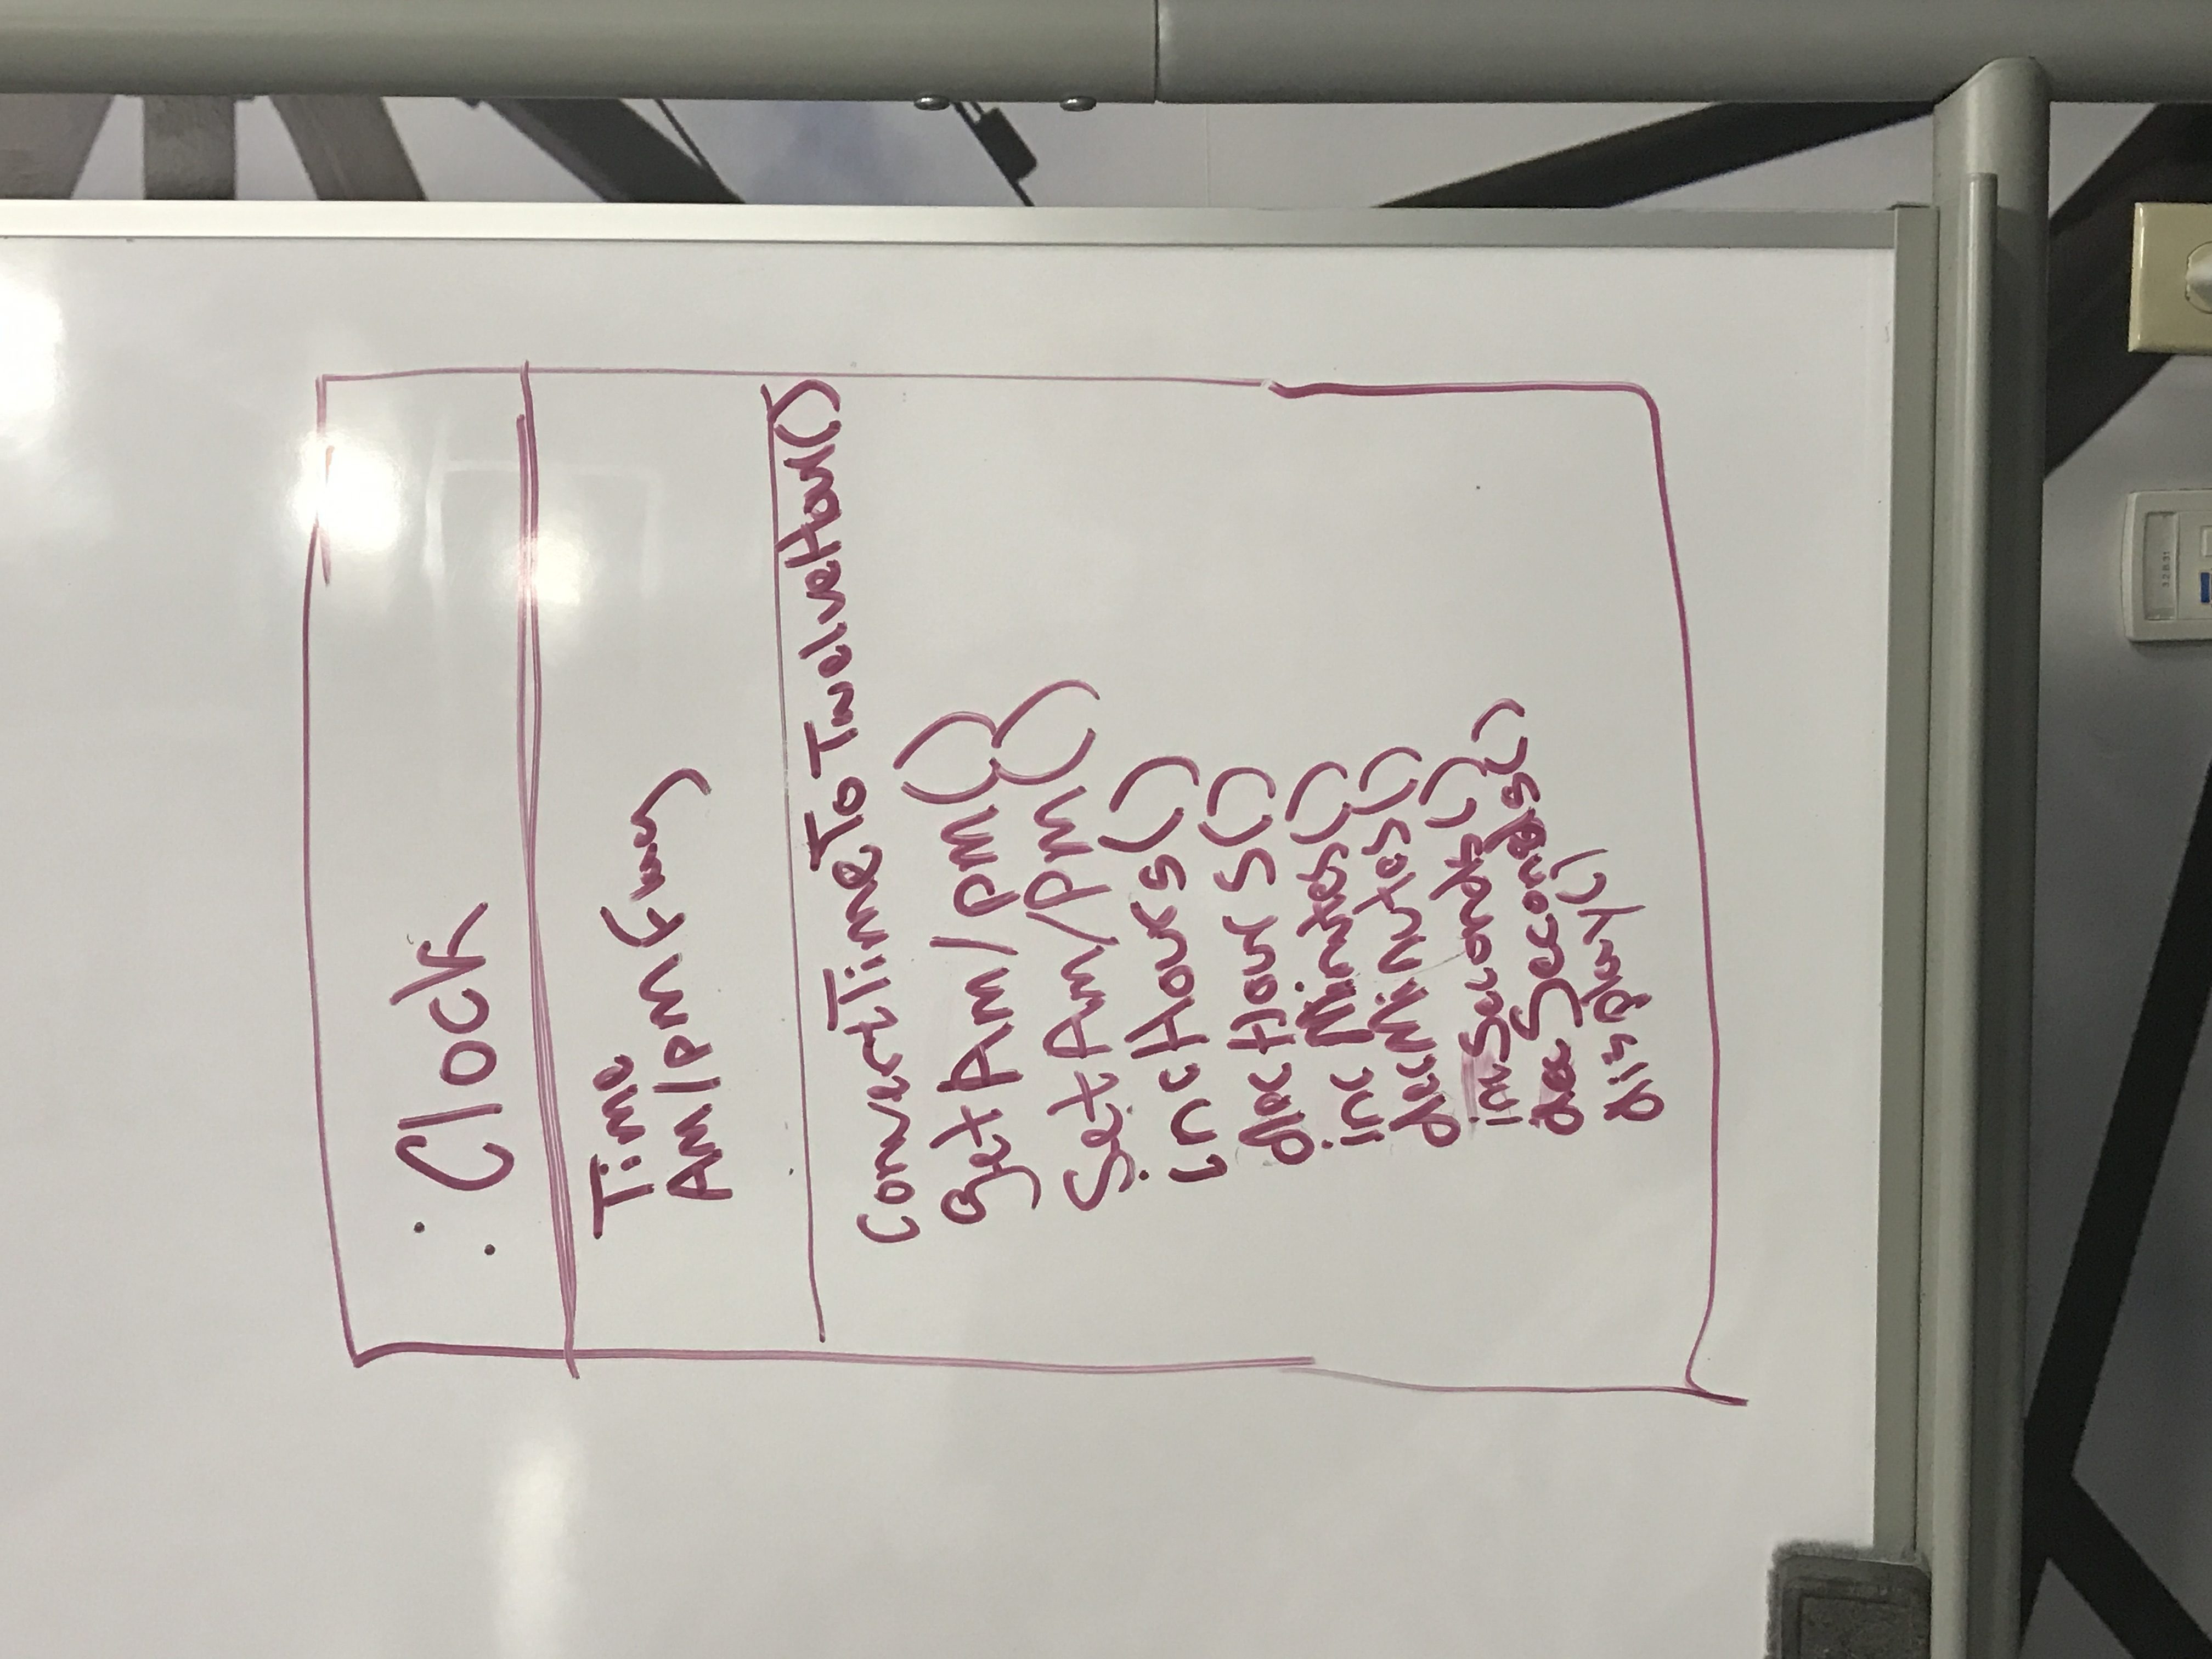 : Clock
Time
Am/pm Flag
ConvertTimeToTwelveHour()
getAm/pm()
SetAm/Pm()
incHours()
decHours()
incMinutes()
decMinutes()
incSeconds()
decSeconds()
display()
3.2.B.31